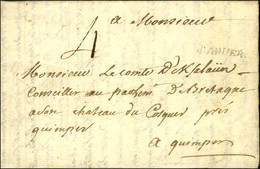 a Monsieur
4
Monsieur Le comte De
Conseiller au parlemt De Bretagne
a son chateau du Cosquer près
quimper
a quimper